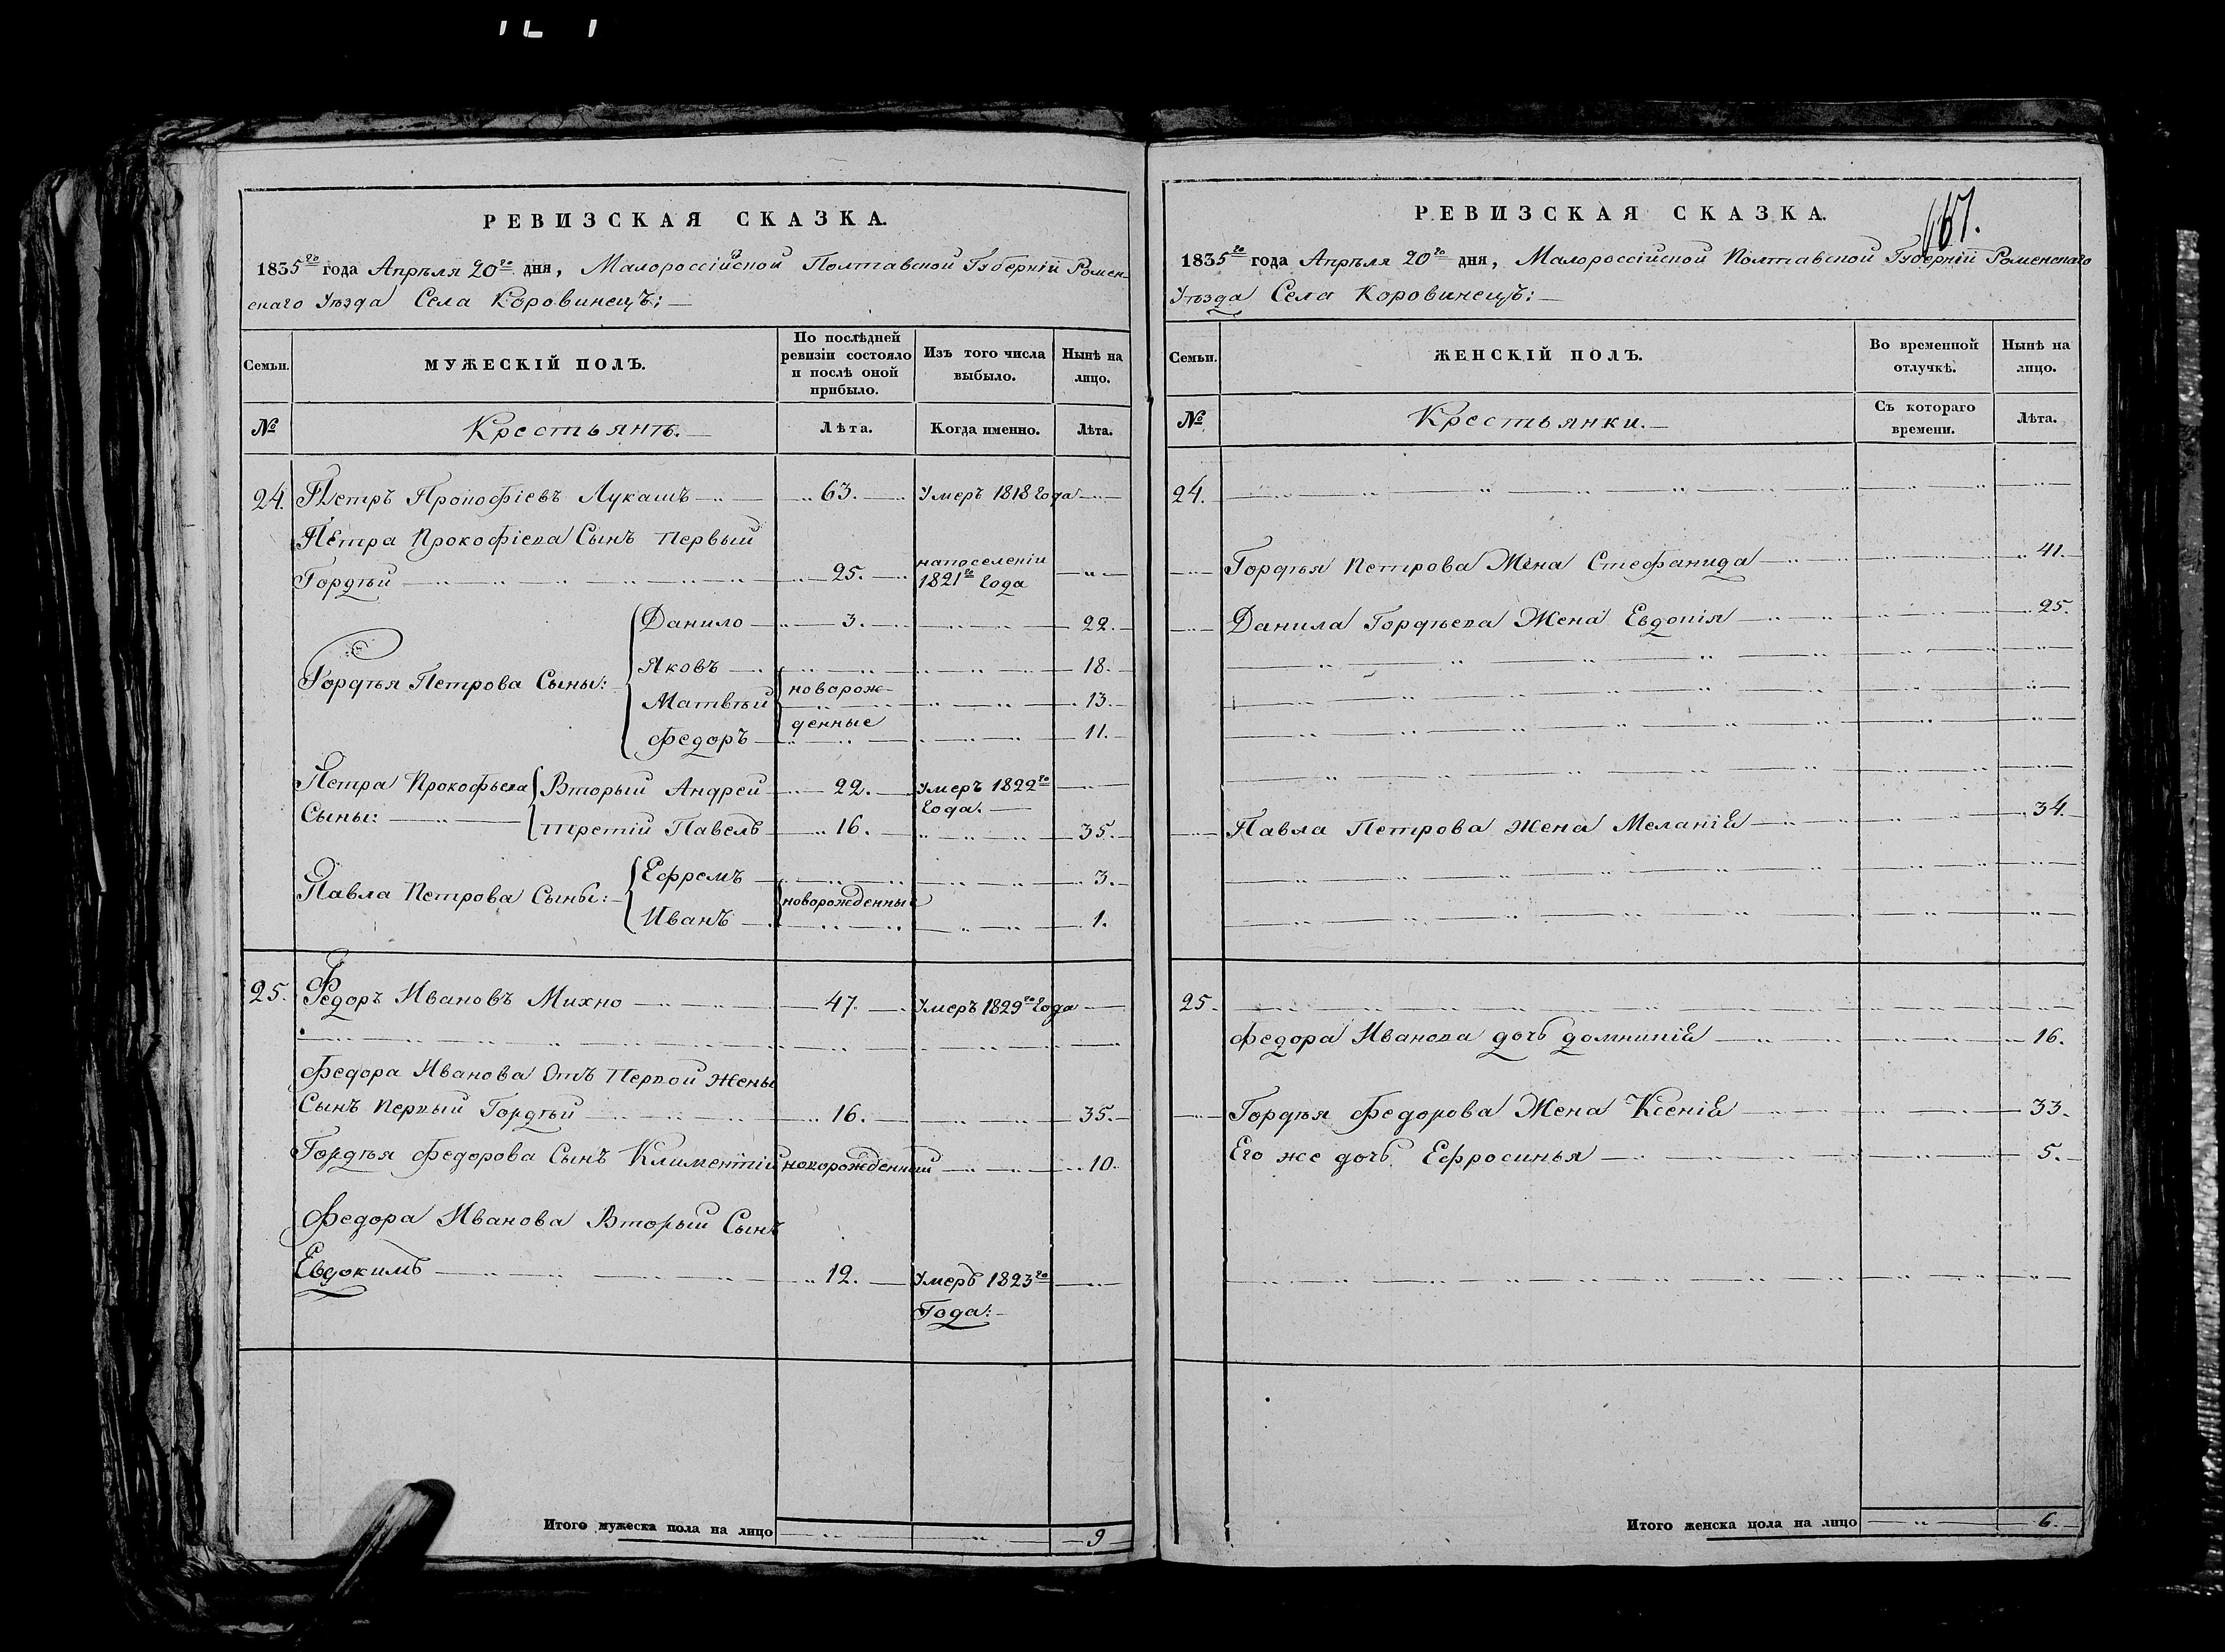 РЕВИЗСКАЯ СКАЗКА.
1835го года Апрѣля 20го дня, Малороссійской Полтавской Губерніи Ромен-
скаго Уѣзда Села Коровинецъ:
Семьи. МУЖЕСКІЙ ПОЛЪ. По послѣдней ревизіи состояло и послѣ оной прибыло. Изъ того числа выбыло. Нынѣ на лицо.
№ Крестьянъ. Лѣта. Когда именно. Лѣта.
24. Петръ Прокофіевъ Лукашъ 63. Умеръ 1818 Года
Петра Прокофіева Сынъ Первый
Гордѣй 25. на поселеніи 1821го Года
Данило 3. 22.
Яковъ 18.
Гордѣя Петрова Сыны:
Матвѣй новорож- 13.
Федоръ денные 11.
Петра Прокофьева Вторый Андрей 22. Умеръ 1822го Года.
Сыны: третій Павелъ 16. 35.
Ефремъ 3.
Павла Петрова Сыны: новорожденные
Иванъ 1.
25. Федоръ Ивановъ Михно 47. Умеръ 1829го Года
Федора Иванова Отъ Первой Жены
Сынъ Первый Гордѣй 16. 35.
Гордѣя Федорова Сынъ Климентій новорожденный 10.
Федора Иванова Вторый Сынъ
Евдокимъ 12. Умеръ 1823го
Года:
Итого мужеска пола на лицо 9
РЕВИЗСКАЯ СКАЗКА.
1835го года Апрѣля 20го дня, Малороссійской Полтавской Губерніи Роменскаго
Уѣзда Села Коровинецъ:
Семьи. ЖЕНСКІЙ ПОЛЪ. Во временной отлучкѣ. Нынѣ на лицо.
№ Крестьянки. Съ котораго времени. Лѣта.
24.
Гордѣя Петрова Жена Стефанида 41.
Данила Гордѣева Жена Евдокія 25.
Павла Петрова Жена Меланія 34.
25.
Федора Иванова дочь домникія 16.
Гордѣя Федорова Жена Ксенія 33.
Его же дочь Ефросинья 5.
Итого женска пола на лицо 6.